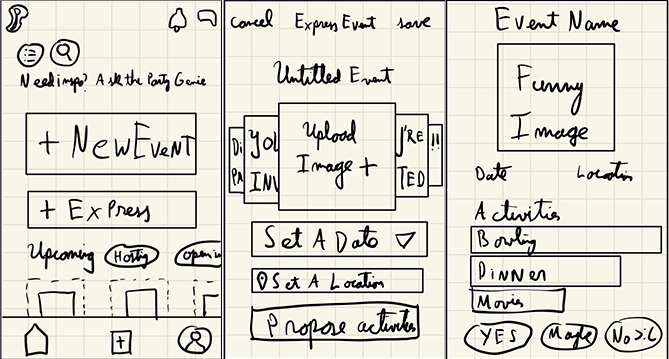 Need inspo? Ask the Party Genie
+ New Event
+ Express
Upcoming Hosting
Cancel Express Event save
Untitled Event
YOU
INV
Upload
Image +
'RE
TED
!!
Set A Date
Set A Location
Propose activities
Event Name
Funny
Image
Date Location
Activities
Bowling
Dinner
Movies
YES Maybe No :(